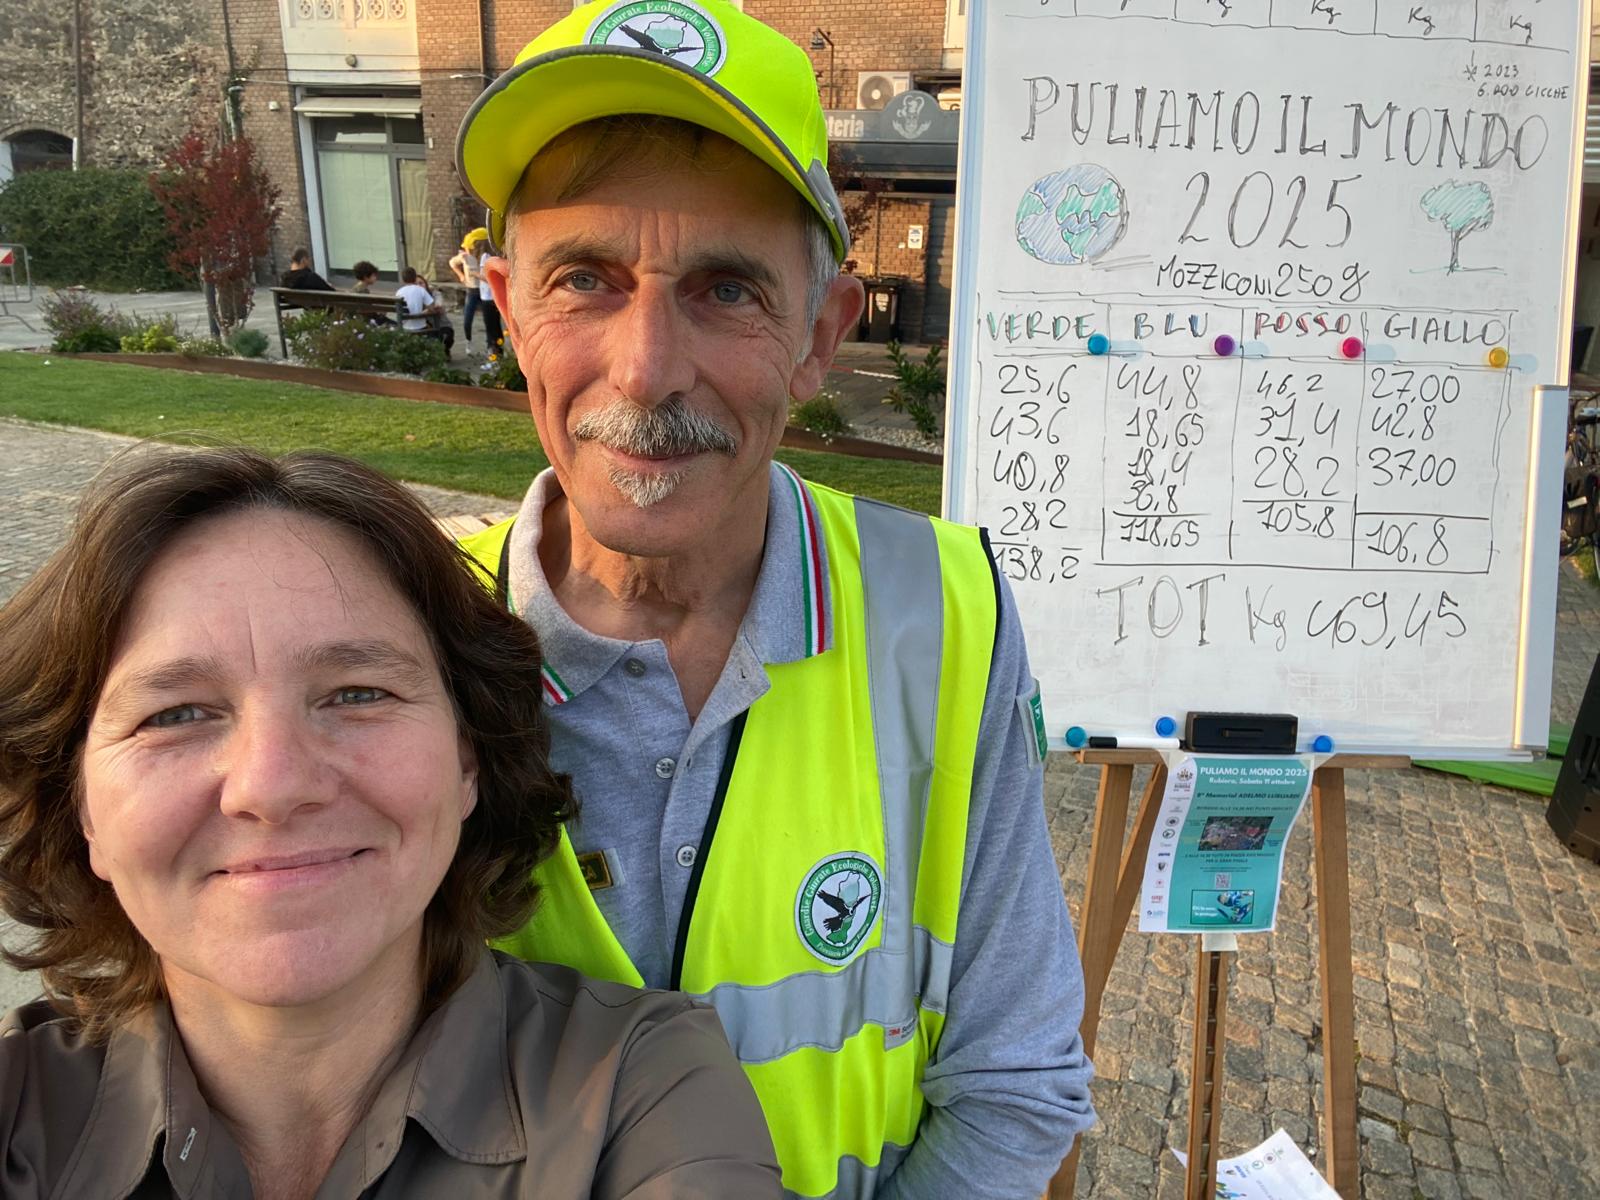 Kg Kg Kg Kg
* 2023
6.000 CICCHE
PULIAMO IL MONDO
2025
MOZZICONI 250 g
VERDE BLU ROSSO GIALLO
25,6 44,8 46,2 27,00
43,6 18,65 31,4 42,8
40,8 18,4 28,2 37,00
28,2 36,8 105,8 106,8
138,2 118,65
TOT Kg 469,45
Guardie Giurate Ecologiche Volontarie
teria
Guardie Giurate Ecologiche Volontarie
3M
PULIAMO IL MONDO 2025
Rubiera, Sabato 11 ottobre
8° Memorial ADELMO LUSUARDI